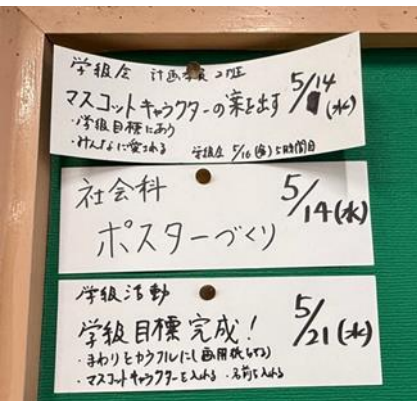 学級会 計画委員 2班
5/14(水)
マスコットキャラクターの案を出す
・学級目標にあう
・みんなに愛される
学級会 5/16(金)5時間目
社会科
5/14(水)
ポスターづくり
学級活動
5/21(水)
学級目標完成!
・まわりをカラフルに(画用紙
・マスコットキャラクターを入れる ・名前を入れる